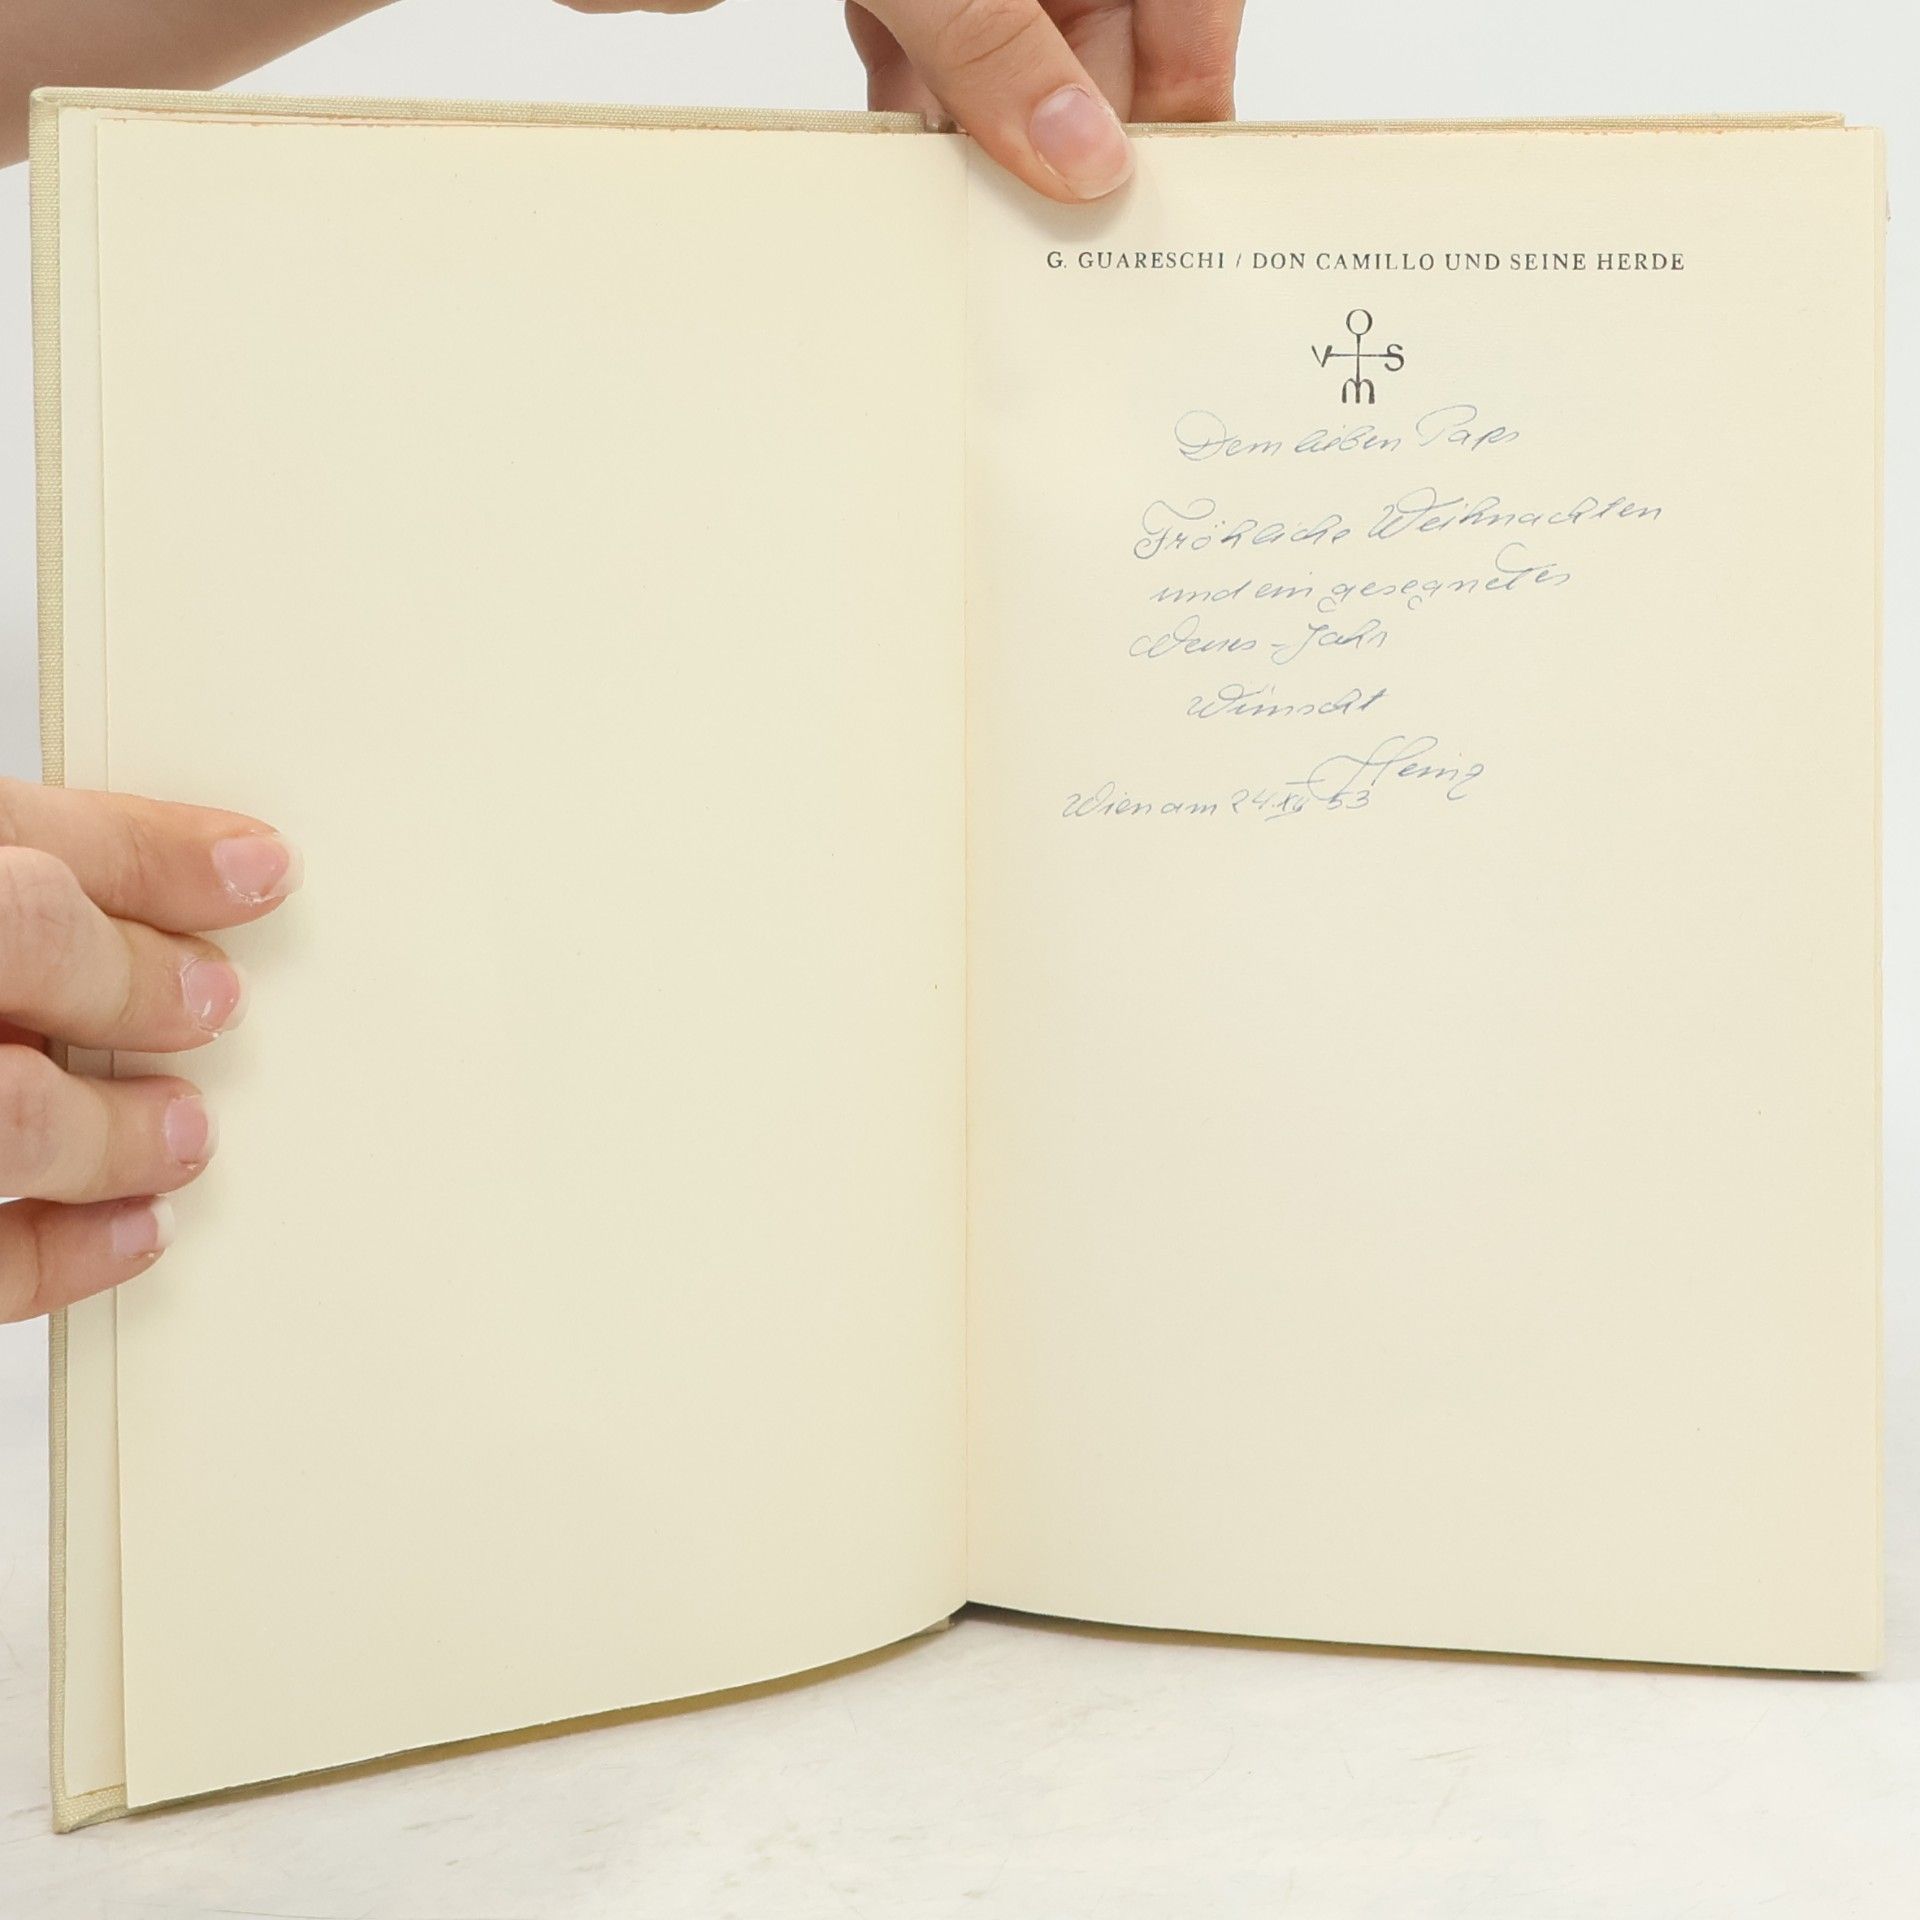 G. GUARESCHI / DON CAMILLO UND SEINE HERDE
O
V S
M
Dem lieben Paps
Fröhliche Weihnachten
und ein gesegnetes
Neues-Jahr
Wünscht
Heinz
Wien am 24.XII 53